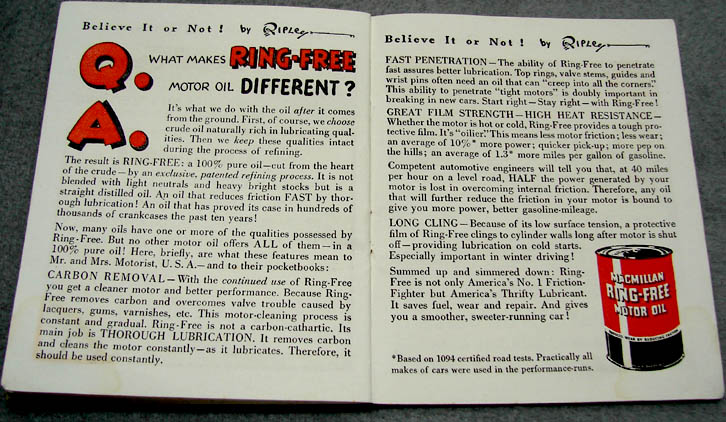 Believe It or Not! by Ripley
Q. WHAT MAKES RING-FREE
MOTOR OIL DIFFERENT?
A. It's what we do with the oil after it comes
from the ground. First, of course, we choose
crude oil naturally rich in lubricating qual-
ities. Then we keep these qualities intact
during the process of refining.
The result is RING-FREE: a 100% pure oil—cut from the heart
of the crude—by an exclusive, patented refining process. It is not
blended with light neutrals and heavy bright stocks but is a
straight distilled oil. An oil that reduces friction FAST by thor-
ough lubrication! An oil that has proved its case in hundreds of
thousands of crankcases the past ten years!
Now, many oils have one or more of the qualities possessed by
Ring-Free. But no other motor oil offers ALL of them—in a
100% pure oil! Here, briefly, are what these features mean to
Mr. and Mrs. Motorist, U. S. A.—and to their pocketbooks:
CARBON REMOVAL—With the continued use of Ring-Free
you get a cleaner motor and better performance. Because Ring-
Free removes carbon and overcomes valve trouble caused by
lacquers, gums, varnishes, etc. This motor-cleaning process is
constant and gradual. Ring-Free is not a carbon-cathartic. Its
main job is THOROUGH LUBRICATION. It removes carbon
and cleans the motor constantly—as it lubricates. Therefore, it
should be used constantly.
Believe It or Not! by Ripley
FAST PENETRATION—The ability of Ring-Free to penetrate
fast assures better lubrication. Top rings, valve stems, guides and
wrist pins often need an oil that can "creep into all the corners."
This ability to penetrate "tight motors" is doubly important in
breaking in new cars. Start right—Stay right—with Ring-Free!
GREAT FILM STRENGTH—HIGH HEAT RESISTANCE—
Whether the motor is hot or cold, Ring-Free provides a tough pro-
tective film. It's "oilier." This means less motor friction; less wear;
an average of 10%* more power; quicker pick-up; more pep on
the hills; an average of 1.3* more miles per gallon of gasoline.
Competent automotive engineers will tell you that, at 40 miles
per hour on a level road, HALF the power generated by your
motor is lost in overcoming internal friction. Therefore, any oil
that will further reduce the friction in your motor is bound to
give you more power, better gasoline-mileage.
LONG CLING—Because of its low surface tension, a protective
film of Ring-Free clings to cylinder walls long after motor is shut
off—providing lubrication on cold starts.
Especially important in winter driving!
Summed up and simmered down: Ring-
Free is not only America's No. 1 Friction-
Fighter but America's Thrifty Lubricant.
It saves fuel, wear and repair. And gives
you a smoother, sweeter-running car!
MACMILLAN
RING-FREE
MOTOR OIL
*Based on 1094 certified road tests. Practically all
makes of cars were used in the performance-runs.